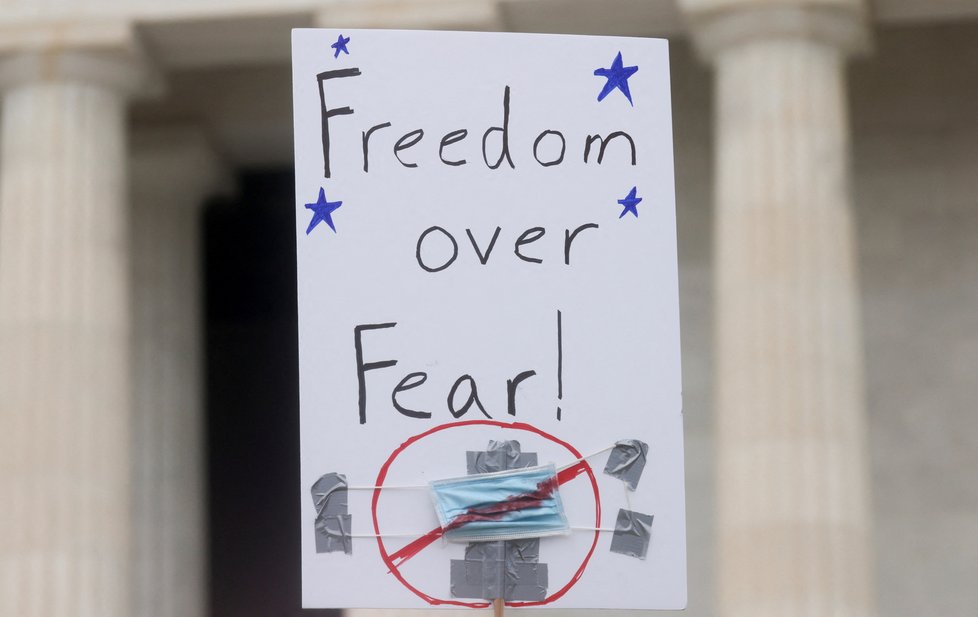 Freedom
over
Fear!